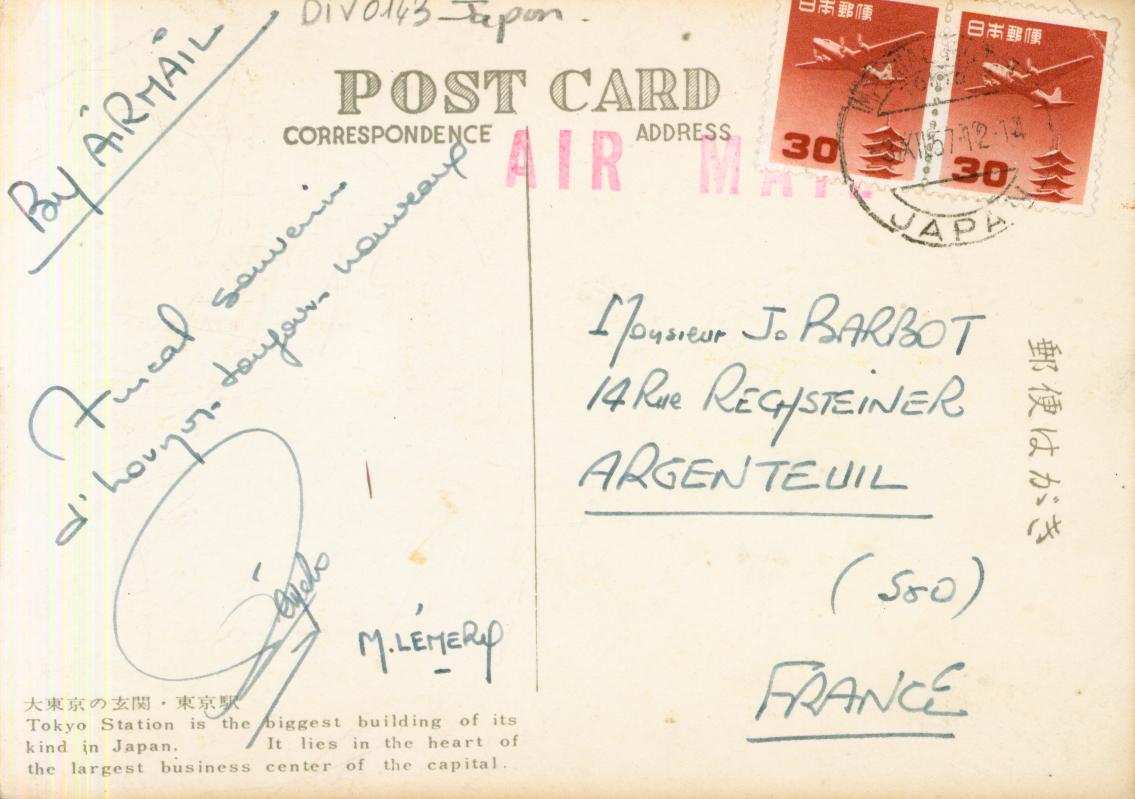 DIV0143 Japon.
日本郵便
日本郵便
30
30
XII 57.12-14
JAPAN
POST CARD
CORRESPONDENCE
ADDRESS
AIR MAIL
By AIRMAIL
Amical souvenir
M. LÉMERY
Monsieur Jo BARBOT
14 Rue REGHSTEINER
ARGENTEUIL
(S&O)
FRANCE
郵便はがき
大東京の玄関・東京駅
Tokyo Station is the biggest building of its
kind in Japan. It lies in the heart of
the largest business center of the capital.